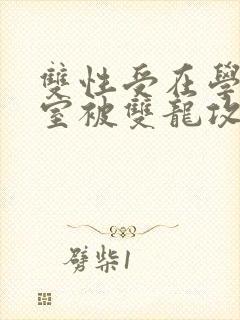 雙性受在學
室被雙龍攻
劈柴1